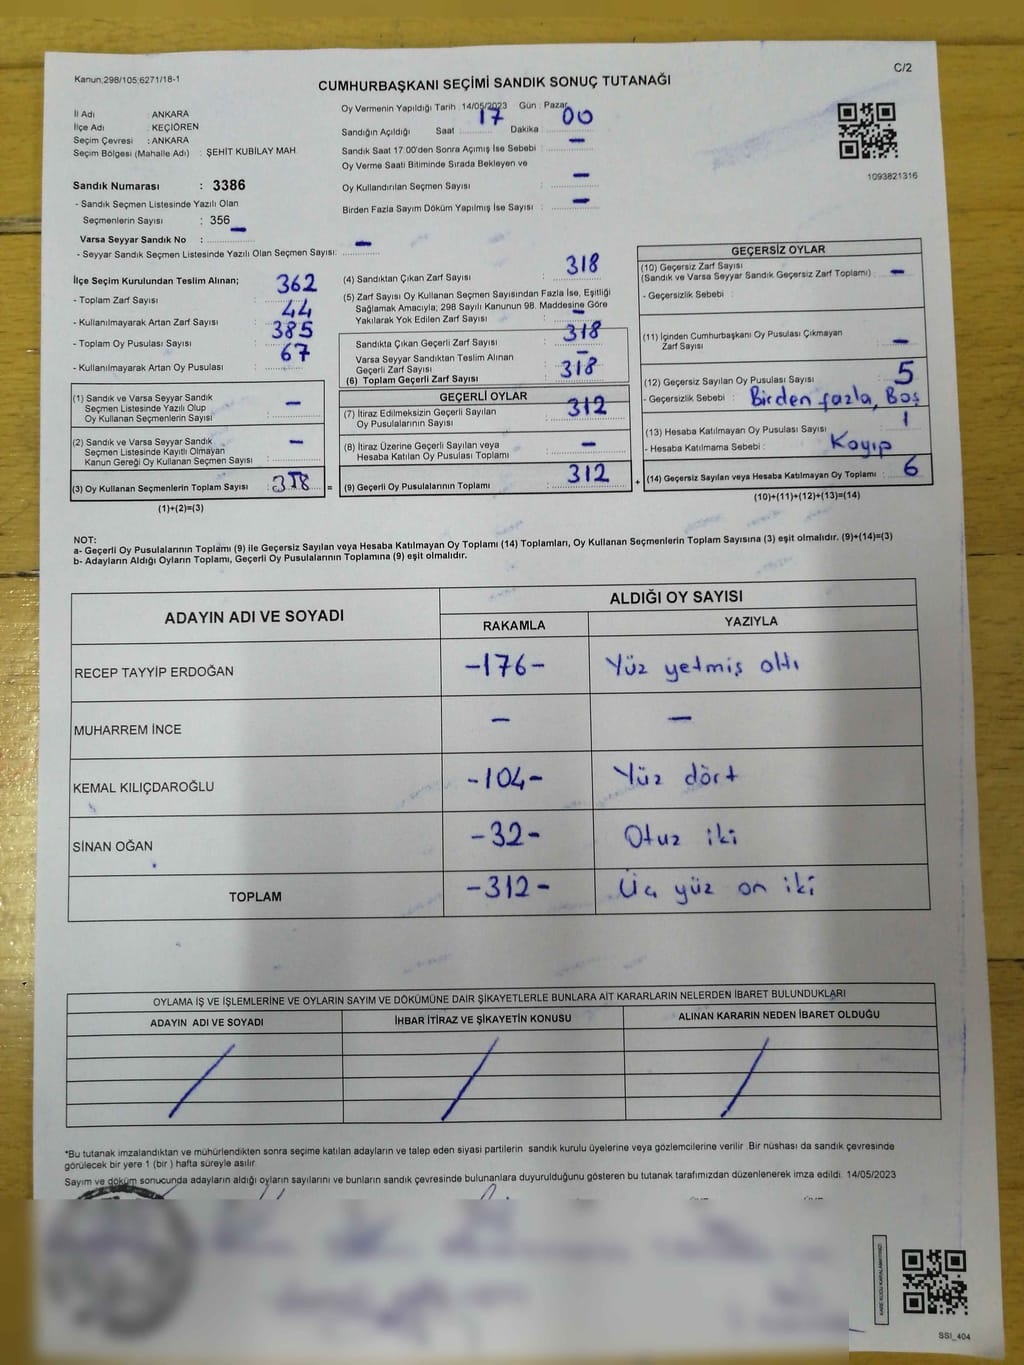 Kanun:298/105;6271/18-1
C/2
CUMHURBAŞKANI SEÇİMİ SANDIK SONUÇ TUTANAĞI
İl Adı : ANKARA
İlçe Adı : KEÇİÖREN
Seçim Çevresi : ANKARA
Seçim Bölgesi (Mahalle Adı) : ŞEHİT KUBİLAY MAH
Sandık Numarası : 3386
- Sandık Seçmen Listesinde Yazılı Olan
Seçmenlerin Sayısı : 356
Varsa Seyyar Sandık No : -
- Seyyar Sandık Seçmen Listesinde Yazılı Olan Seçmen Sayısı: -
Oy Vermenin Yapıldığı Tarih : 14/05/2023 Gün : Pazar
Sandığın Açıldığı Saat 17 Dakika 00
Sandık Saat 17:00'den Sonra Açımış İse Sebebi : -
Oy Verme Saati Bitiminde Sırada Bekleyen ve
Oy Kullandırılan Seçmen Sayısı : -
Birden Fazla Sayım Döküm Yapılmış İse Sayısı : -
1093821316
İlçe Seçim Kurulundan Teslim Alınan;
- Toplam Zarf Sayısı : 362
- Kullanılmayarak Artan Zarf Sayısı : 44
- Toplam Oy Pusulası Sayısı : 385
- Kullanılmayarak Artan Oy Pusulası : 67
(1) Sandık ve Varsa Seyyar Sandık
Seçmen Listesinde Yazılı Olup
Oy Kullanan Seçmenlerin Sayısı : -
(2) Sandık ve Varsa Seyyar Sandık
Seçmen Listesinde Kayıtlı Olmayan
Kanun Gereği Oy Kullanan Seçmen Sayısı : -
(3) Oy Kullanan Seçmenlerin Toplam Sayısı : 318 =
(1)+(2)=(3)
(4) Sandıktan Çıkan Zarf Sayısı : 318
(5) Zarf Sayısı Oy Kullanan Seçmen Sayısından Fazla İse, Eşitliği
Sağlamak Amacıyla; 298 Sayılı Kanunun 98. Maddesine Göre
Yakılarak Yok Edilen Zarf Sayısı : -
Sandıkta Çıkan Geçerli Zarf Sayısı : 318
Varsa Seyyar Sandıktan Teslim Alınan
Geçerli Zarf Sayısı : -
(6) Toplam Geçerli Zarf Sayısı : 318
GEÇERLİ OYLAR
(7) İtiraz Edilmeksizin Geçerli Sayılan
Oy Pusulasının Sayısı : 312
(8) İtiraz Üzerine Geçerli Sayılan veya
Hesaba Katılan Oy Pusulası Toplamı : -
(9) Geçerli Oy Pusulalarının Toplamı : 312 +
GEÇERSİZ OYLAR
(10) Geçersiz Zarf Sayısı
(Sandık ve Varsa Seyyar Sandık Geçersiz Zarf Toplamı) : -
- Geçersizlik Sebebi :
(11) İçinden Cumhurbaşkanı Oy Pusulası Çıkmayan
Zarf Sayısı : -
(12) Geçersiz Sayılan Oy Pusulası Sayısı : 5
- Geçersizlik Sebebi : Birden fazla, Boş
(13) Hesaba Katılmayan Oy Pusulası Sayısı : 1
- Hesaba Katılmama Sebebi : Kayıp
(14) Geçersiz Sayılan veya Hesaba Katılmayan Oy Toplamı : 6
(10)+(11)+(12)+(13)=(14)
NOT:
a- Geçerli Oy Pusulalarının Toplamı (9) ile Geçersiz Sayılan veya Hesaba Katılmayan Oy Toplamı (14) Toplamları, Oy Kullanan Seçmenlerin Toplam Sayısına (3) eşit olmalıdır. (9)+(14)=(3)
b- Adayların Aldığı Oyların Toplamı, Geçerli Oy Pusulalarının Toplamına (9) eşit olmalıdır.
ADAYIN ADI VE SOYADI
ALDIĞI OY SAYISI
RAKAMLA YAZIYLA
RECEP TAYYİP ERDOĞAN -176- Yüz yetmiş altı
MUHARREM İNCE - -
KEMAL KILIÇDAROĞLU -104- Yüz dört
SİNAN OĞAN -32- Otuz iki
TOPLAM -312- Üç yüz on iki
OYLAMA İŞ VE İŞLEMLERİNE VE OYLARIN SAYIM VE DÖKÜMÜNE DAİR ŞİKAYETLERLE BUNLARA AİT KARARLARIN NELERDEN İBARET BULUNDUKLARI
ADAYIN ADI VE SOYADI İHBAR İTİRAZ VE ŞİKAYETİN KONUSU ALINAN KARARIN NEDEN İBARET OLDUĞU
*Bu tutanak imzalandıktan ve mühürlendikten sonra seçime katılan adayların ve talep eden siyasi partilerin sandık kurulu üyelerine veya gözlemcilerine verilir .Bir nüshası da sandık çevresinde
görülecek bir yere 1 (bir ) hafta süreyle asılır
Sayım ve döküm sonucunda adayların aldığı oyların sayılarını ve bunların sandık çevresinde bulunanlara duyurulduğunu gösteren bu tutanak tarafımızdan düzenlenerek imza edildi. 14/05/2023
SSI_404